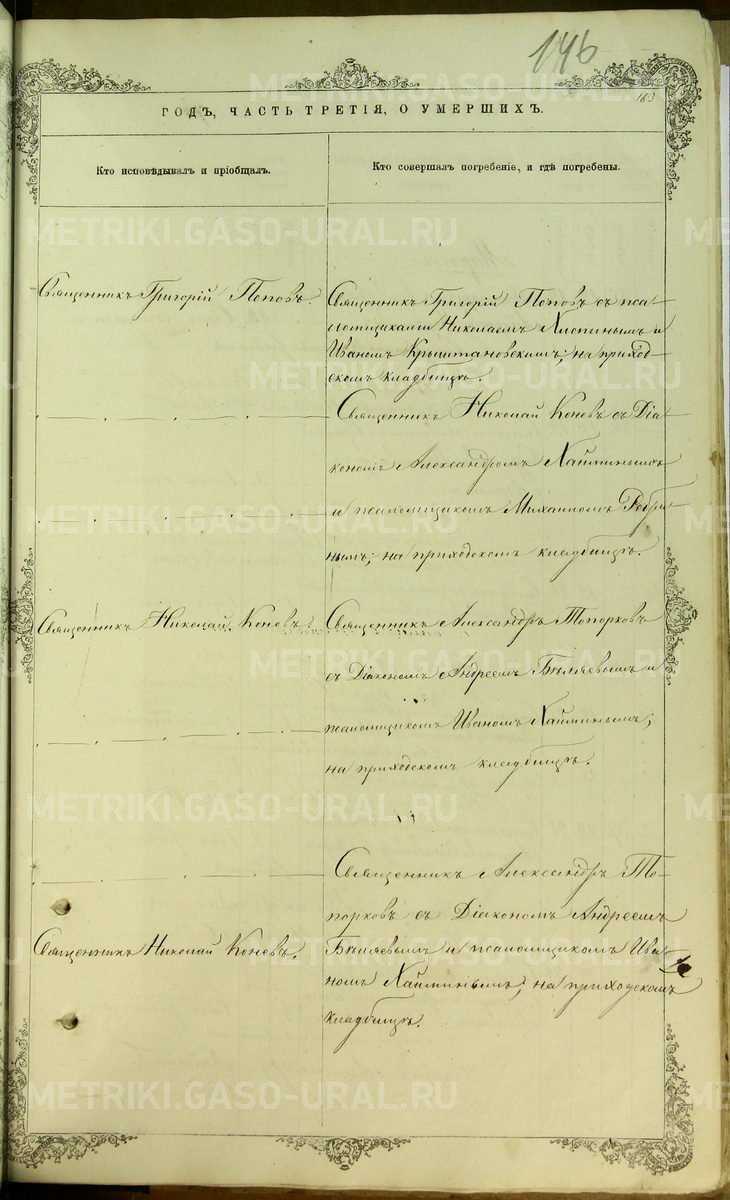 146
163
ГОДЪ, ЧАСТЬ ТРЕТІЯ, О УМЕРШИХЪ.
Кто исповѣдывалъ и пріобщалъ.
Кто совершалъ погребеніе, и гдѣ погребены.
Священникъ Григорій Поповъ.
Священникъ Григорій Поповъ съ пса-
ломщиками Николаемъ Хлопинымъ и
Иваномъ Крыштановскимъ; на приход-
скомъ кладбищѣ.
Священникъ Николай Коневъ съ Діа-
кономъ Александромъ Хайминымъ
и псаломщикомъ Михаиломъ Ребри-
нымъ; на приходскомъ кладбищѣ.
Священникъ Николай Коневъ.
Священникъ Александръ Топорковъ
съ Діакономъ Андреемъ Бѣляевымъ и
псаломщикомъ Иваномъ Хайминымъ;
на приходскомъ кладбищѣ.
Священникъ Александръ То-
порковъ съ Діакономъ Андреемъ
Священникъ Николай Коневъ.
Бѣляевымъ и псаломщикомъ Ива-
номъ Хайминымъ; на приходскомъ
кладбищѣ.
METRIKI.GASO-URAL.RU